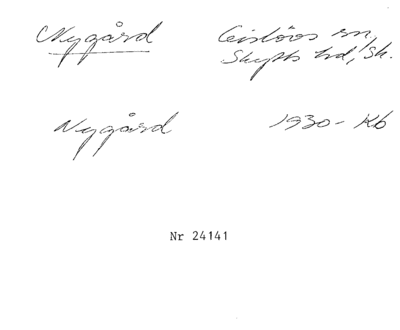 Nygård Gislövs sn,
Skytts hd, Sk.
Nygård 1930- Kb
Nr 24141